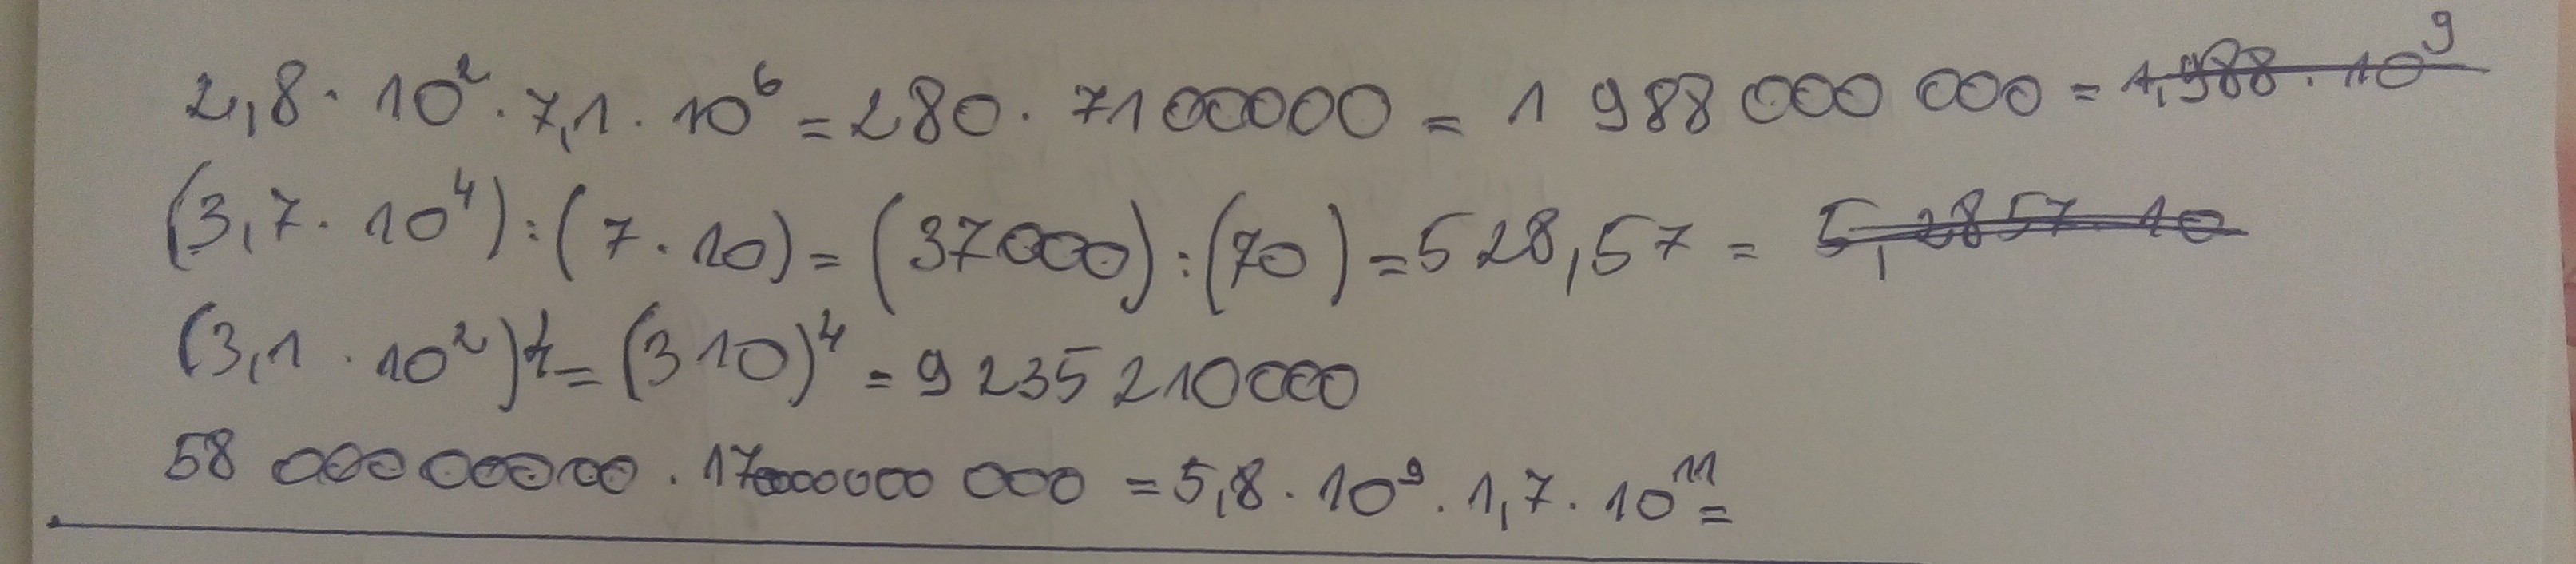 2,8 · 10² · 7,1 · 10⁶ = 280 · 7100000 = 1 988 000 000 = 1,988 · 10⁹
(3,7 · 10⁴) : (7 · 10) = (37000) : (70) = 528,57 = 5,2857 · 10
(3,1 · 10²)⁴ = (310)⁴ = 9 235 210000
58 000 00000 · 170000000 000 = 5,8 · 10⁹ · 1,7 · 10¹¹ =